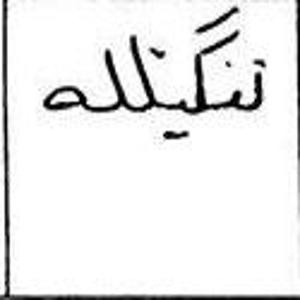 تنگیلله